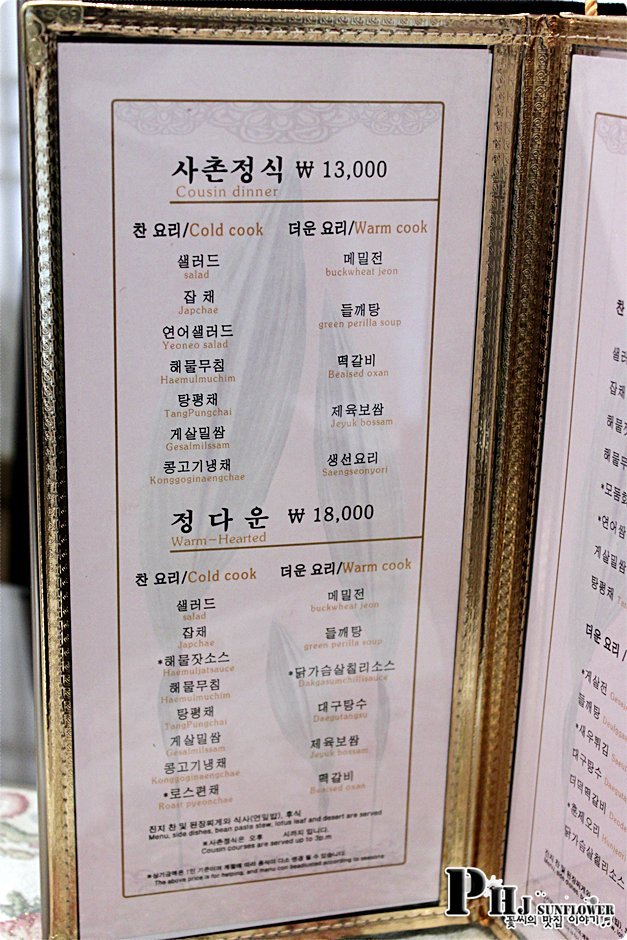 사촌정식 ₩ 13,000
Cousin dinner
찬 요리/Cold cook 더운 요리/Warm cook
샐러드 메밀전
salad buckwheat jeon
잡 채 들깨탕
Japchae green perilla soup
연어샐러드 떡갈비
Yeoneo salad Beaised oxan
해물무침 제육보쌈
Haemulmuchim Jeyuk bossam
탕평채 생선요리
TangPungchai Saengseonyori
게살밀쌈
Gesalmilssam
콩고기냉채
Konggoginaengchae
정 다 운 ₩ 18,000
Warm-Hearted
찬 요리/Cold cook 더운 요리/Warm cook
샐러드 메밀전
salad buckwheat jeon
잡채 들깨탕
Japchae green perilla soup
*해물잣소스 *닭가슴살칠리소스
Haemuljatsauce Dakgasumchillisauce
해물무침 대구탕수
Haemulmuchim Daegutangsu
탕평채 제육보쌈
TangPungchai Jeyuk bossam
게살밀쌈 떡갈비
Gesalmilssam Beaised oxan
콩고기냉채
Konggoginaengchae
*로스편채
Roast pyeonchae
진지 찬 및 된장찌게와 식사(연잎밥), 후식
Menu, side dishes, bean pasta stew, lotus leaf and desert are served
*사촌정식은 오후 시까지 입니다.
Cousin courses are served up to 3p.m
*상기금액은 1인 기준이며 계절에 따라 음식이 다소 변경 될 수 있습니다.
The above price is for helping, and menu can beadiusted according to seasons
찬
샐러
잡채
해물잣
해물무
*모듬회
*연어쌈
게살밀쌈
탕평채
더운 요리/
*게살전
들깨탕
*새우튀김
대구탕수
더덕떡갈비
*훈제오리 Hunjeori
닭가슴살칠리소스
PHJ SUNFLOWER
꽃씨의 맛집 이야기♬